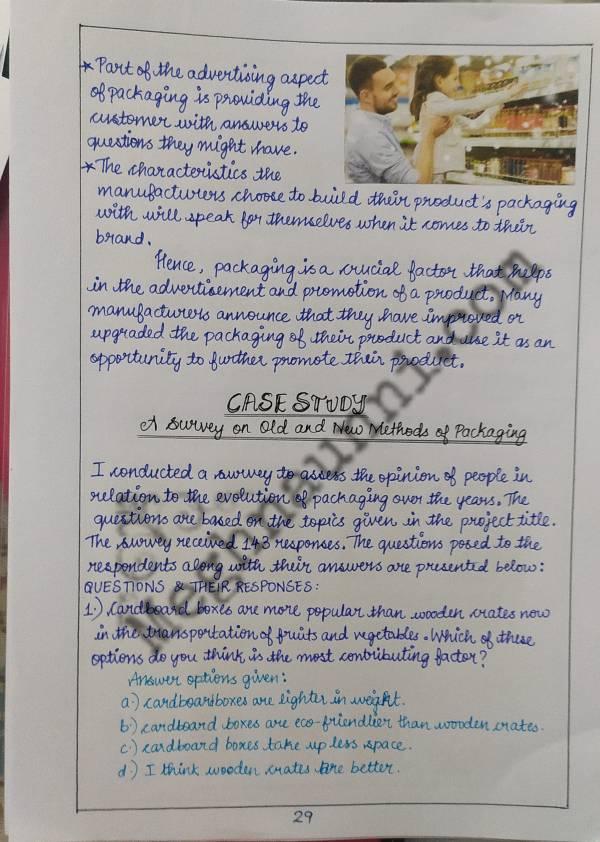 * Part of the advertising aspect
of packaging is providing the
customer with answers to
questions they might have.
* The characteristics the
manufacturers choose to build their product's packaging
with will speak for themselves when it comes to their
brand.
Hence, packaging is a crucial factor that helps
in the advertisement and promotion of a product. Many
manufacturers announce that they have improved or
upgraded the packaging of their product and use it as an
opportunity to further promote their product.
CASE STUDY
A Survey on Old and New Methods of Packaging
I conducted a survey to assess the opinion of people in
relation to the evolution of packaging over the years. The
questions are based on the topics given in the project title.
The survey received 143 responses. The questions posed to the
respondents along with their answers are presented below:
QUESTIONS & THEIR RESPONSES:
1.) Cardboard boxes are more popular than wooden crates now
in the transportation of fruits and vegetables. Which of these
options do you think is the most contributing factor?
Answer options given:
a.) cardboard boxes are lighter in weight.
b.) cardboard boxes are eco-friendlier than wooden crates.
c.) cardboard boxes take up less space.
d.) I think wooden crates are better.
29